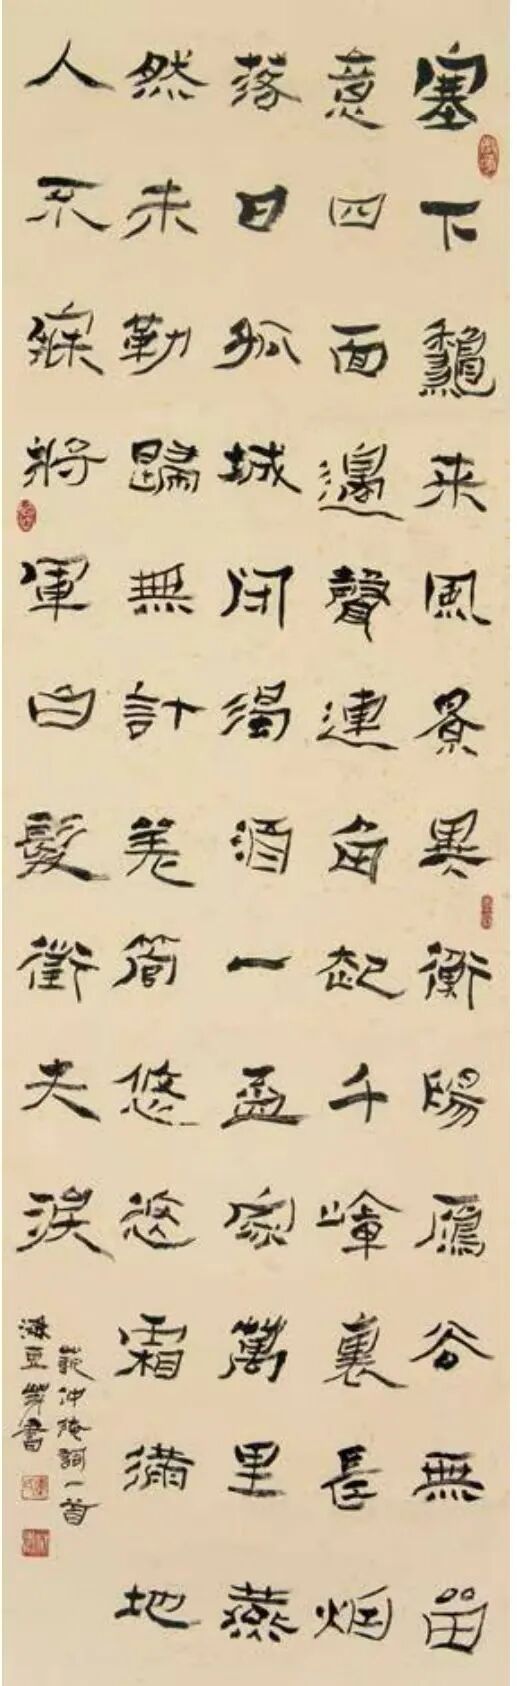 塞下龝来風景異衡陽鴈去無畱
意四面邊聲連角起千嶂裏長烟
落日孤城閉濁酒一盃家萬里燕
然未勒歸無計羌管悠悠霜滿地
人不寐將軍白髮徵夫淚
范仲淹詞一首
書